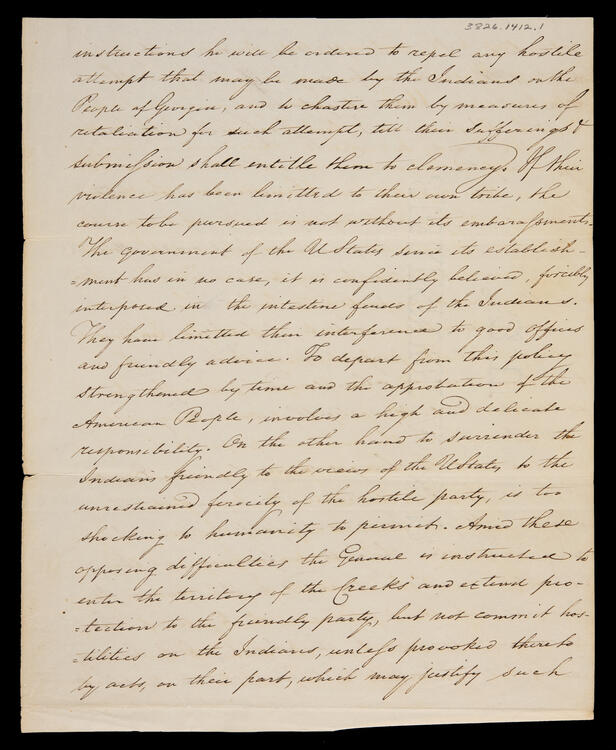 3826.1412.1
instructions he will be ordered to repel any hostile
attempt that may be made by the Indians on the
People of Georgia, and to chastise them by measures of
retaliation for such attempt, till their sufferings &
submission shall entitle them to clemency. If their
violence has been limitted to their own tribe, the
course to be pursued is not without its embarassments.
The government of the U States since its establish-
=ment has in no case, it is confidently believed, forcibly
interposed in the intestine feuds of the Indians.
They have limitted their interference to good offices
and friendly advice. To depart from this policy
strengthened by time and the approbation of the
American People, involves a high and delicate
responsibility. On the other hand to surrender the
Indians friendly to the views of the U States to the
unrestrained ferocity of the hostile party, is too
shocking to humanity to permit. Amid these
opposing difficulties the General is instructed to
enter the territory of the Creeks and extend pro-
=tection to the friendly party, but not commit hos-
=tilities on the Indians, unless provoked thereto
by acts, on their part, which may justify such